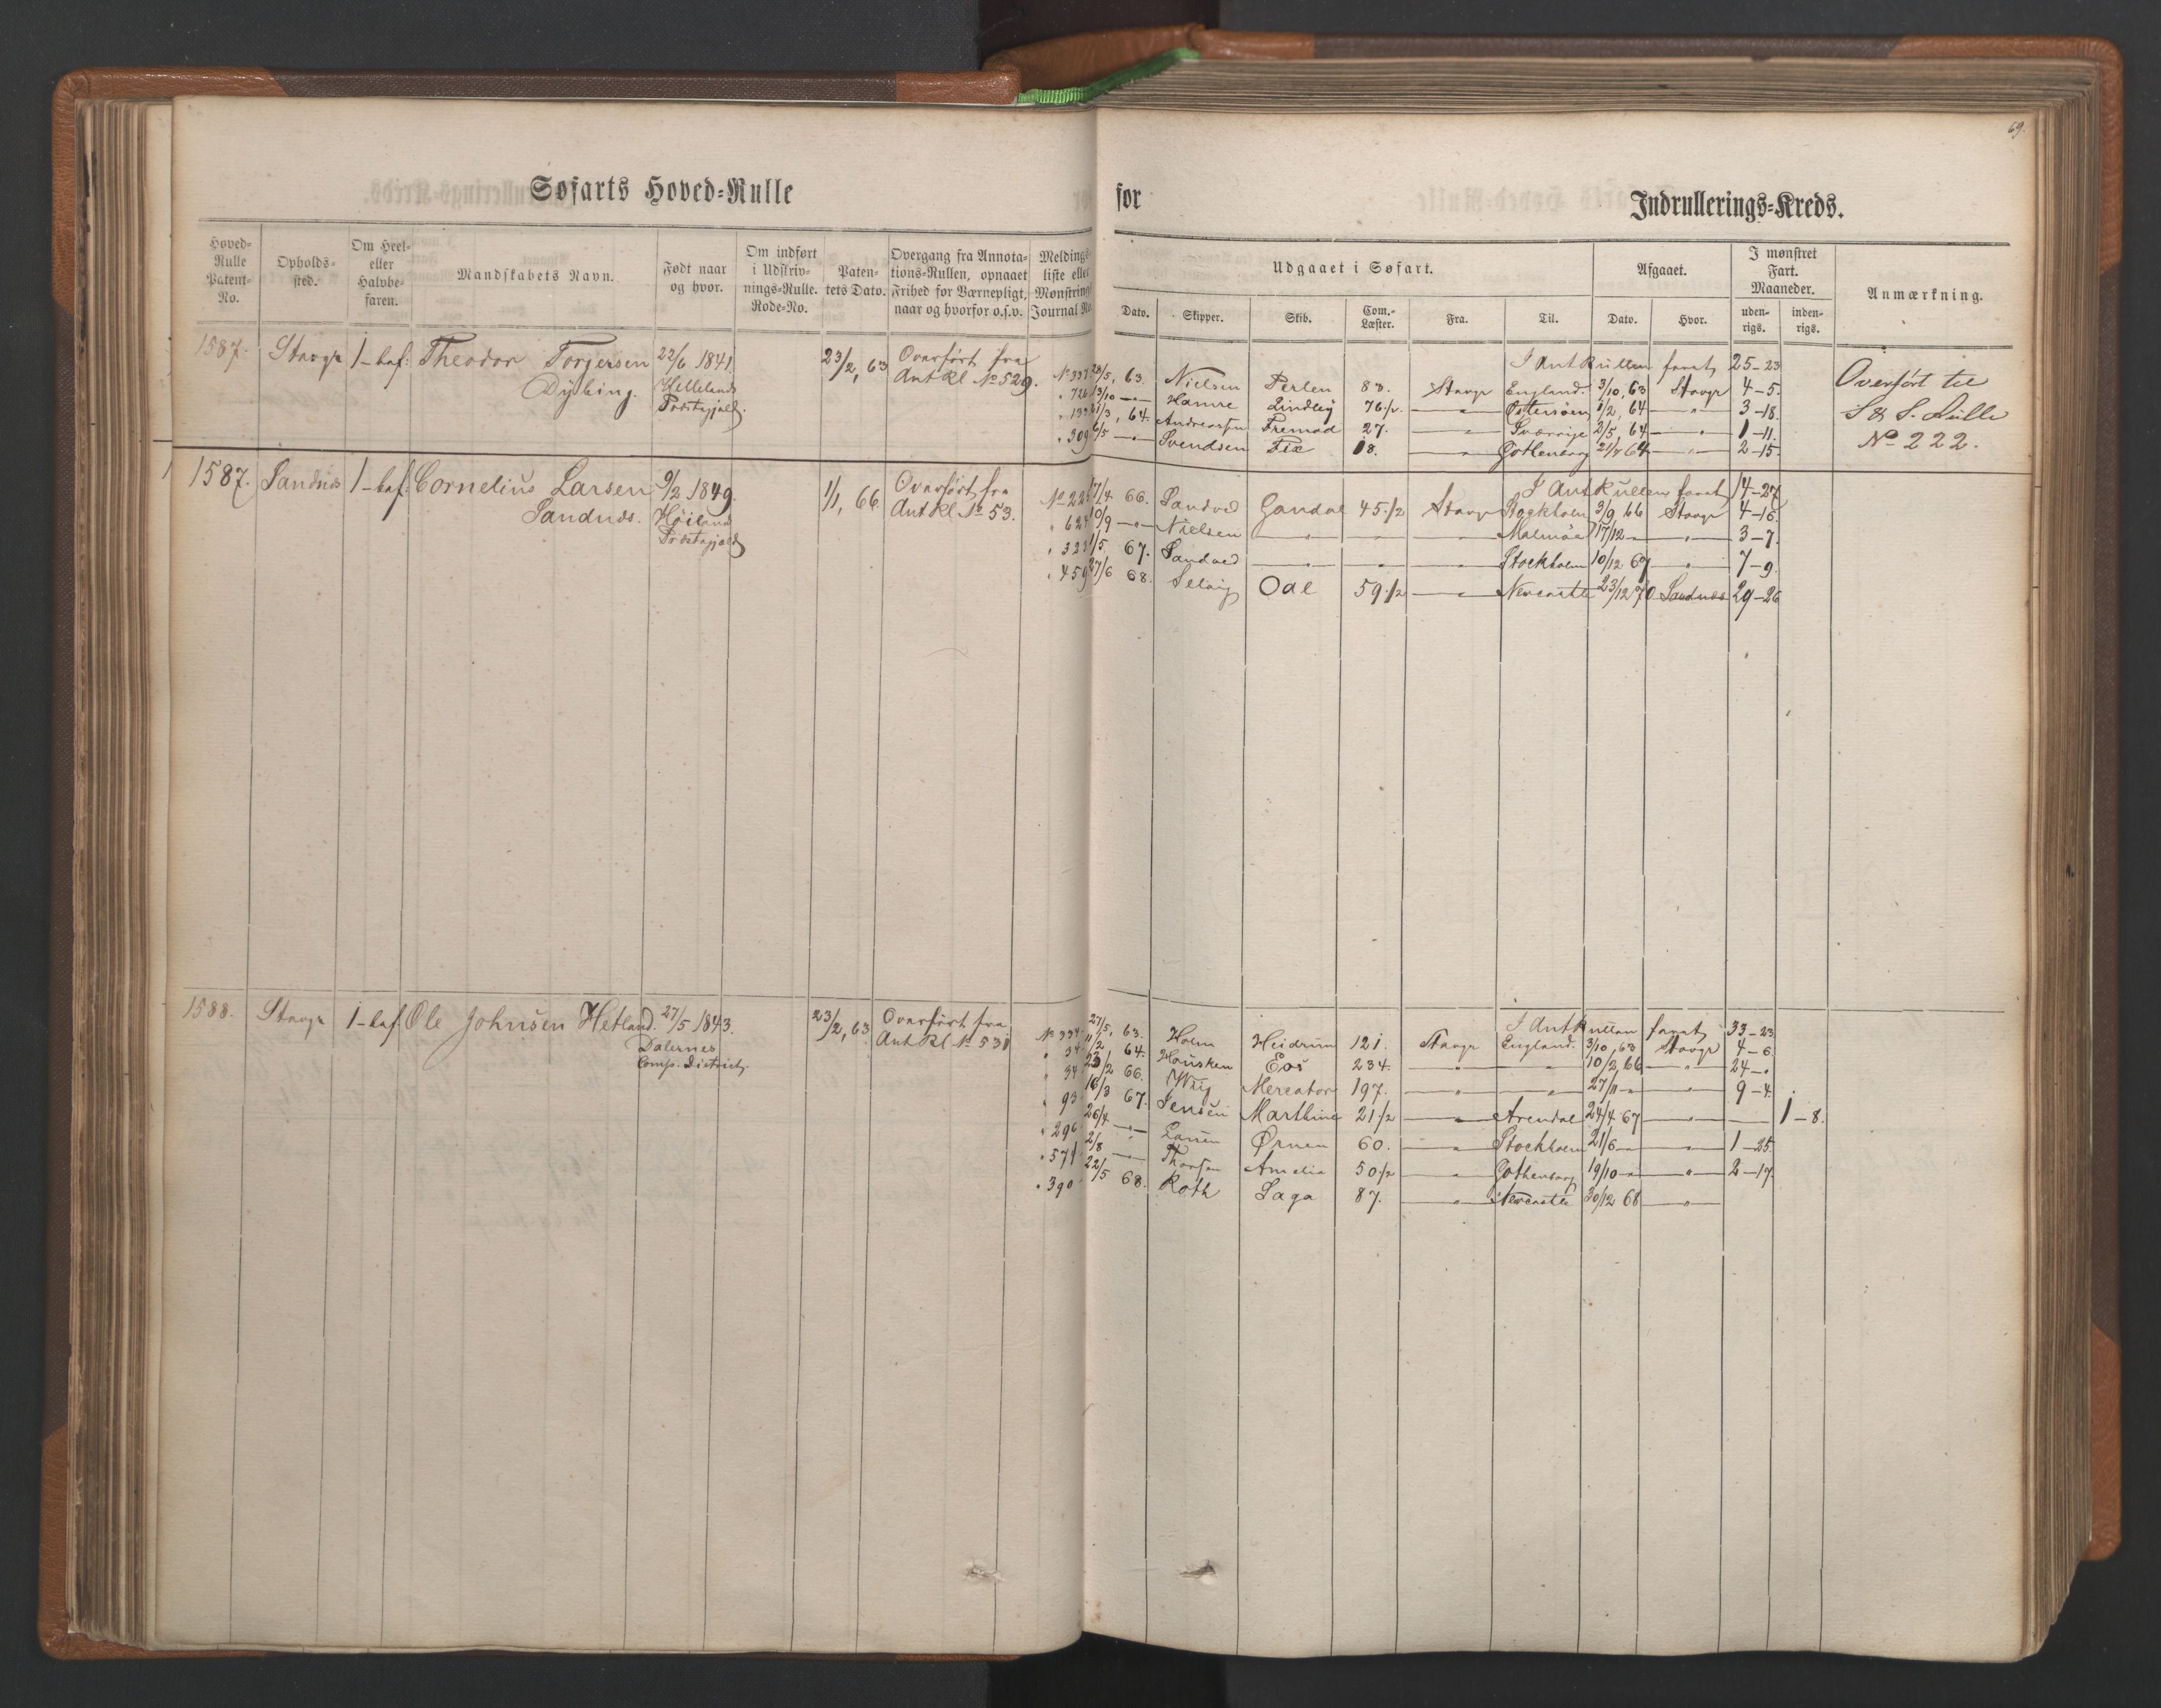 69.
Søfarts Hoved-Rulle for Indrullerings-Kreds.
Hoved-Rulle Patent-No. Opholds-sted. Om Heel- eller Halvbe-faren. Mandskabets Navn. Født naar og hvor. Om indført i Udskriv-nings-Rulle. Rode-No. Paten-tets Dato. Overgang fra Annota-tions-Rullen, opnaaet Frihed for Værnepligt, naar og hvorfor o.s.v. Meldings liste eller Mønstrings Journal No.
Udgaaet i Søfart. Afgaaet. I mønstret Fart. Maaneder. Anmærkning.
Dato. Skipper. Skib. Com.-Læster. Fra. Til. Dato. Hvor. uden-rigs. inden-rigs.
1587. Stavgr 1-baf: Theodor Torgersen 22/6 1841. 23/2, 63 Overført fra
Dybing. Hellelands Ant Rl No 529.
Præstegjeld.
I Ant Rullen faret 25-23
No 337 23/5, 63. Nielsen Perlen 83. Stavgr England. 3/10, 63 Stavgr 4-5.
" 726 13/10 —"— Hamre Lindley 76 1/2. —"— Østersøen 1/2, 64 —"— 3-18.
21/3, 64. Andreassen Fremad 27. —"— Sverrige 2/5 64 —"— 1-11.
" 309 6/5 —"— Svendsen Fix 18. —"— Gothenborg 21/7 64 —"— 2-15.
Overført til
S & S. Rulle
No 222.
1587. Sandnæs 1-baf: Cornelius Larsen 9/2 1849. 1/1, 66. Overført fra
Sandnæs. Høilands Ant Rl No 53.
Præstegjeld
I Ant Rullen faret 14-27
No 22 17/4 66. Sandved Gandal 45 1/2 Stavgr Stockholm 3/9 66 Stavgr 4-16.
" 624 10/9 —"— Nielsen —"— —"— —"— Malmöe 17/12 —"— —"— 3-7.
" 322 1/5 67. Sandved —"— —"— —"— Stockholm 10/12 67 —"— 7-9.
" 459 27/6 68. Selvig Odel 59 1/2 —"— Newcastle 23/12 70 Sandnæs 29-26
1588. Stavgr 1-baf: Ole Johnsen Hetland. 27/5 1843. 23/2, 63 Overført fra
Dalernes Ant Rl No 531
Comp. District.
I Ant Rullen faret 33-23
No 334 27/5, 63. Holm Heidrun 121. Stavgr England. 3/10, 63 Stavgr 4-6.
" 34 11/2 64. Housken Eos 234. —"— —"— 10/2, 66 —"— 24-"
" 34 23/2 66. Wiig Mercator 197. —"— —"— 27/11 —"— —"— 9-4.
" 93 16/3 67. Jensen Marthine 21 1/2 —"— Arendal 24/4 67 —"— — 1-8.
" 296 26/4 —"— Larsen Ørnen 60. —"— Stockholm 21/6 —"— —"— 1-25.
" 571 2/8 —"— Thorsen Amelia 50 1/2 —"— Gothenborg 19/10 —"— —"— 2-17.
" 390 22/5 68. Roth Saga 87. —"— Newcastle 30/12 68 —"—